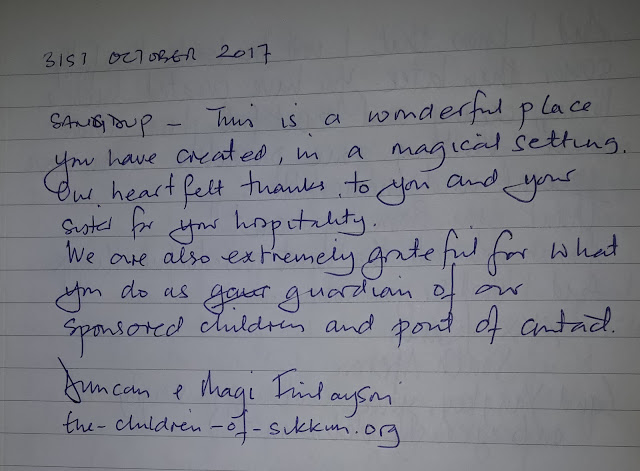 31ST OCTOBER 2017
SANGDUP - This is a wonderful place
you have created, in a magical setting.
Our heartfelt thanks, to you and your
sister for your hospitality.
We are also extremely grateful for what
you do as guardian of our
sponsored children and point of contact.
Duncan & Magi Finlayson
the-children-of-sikkim.org